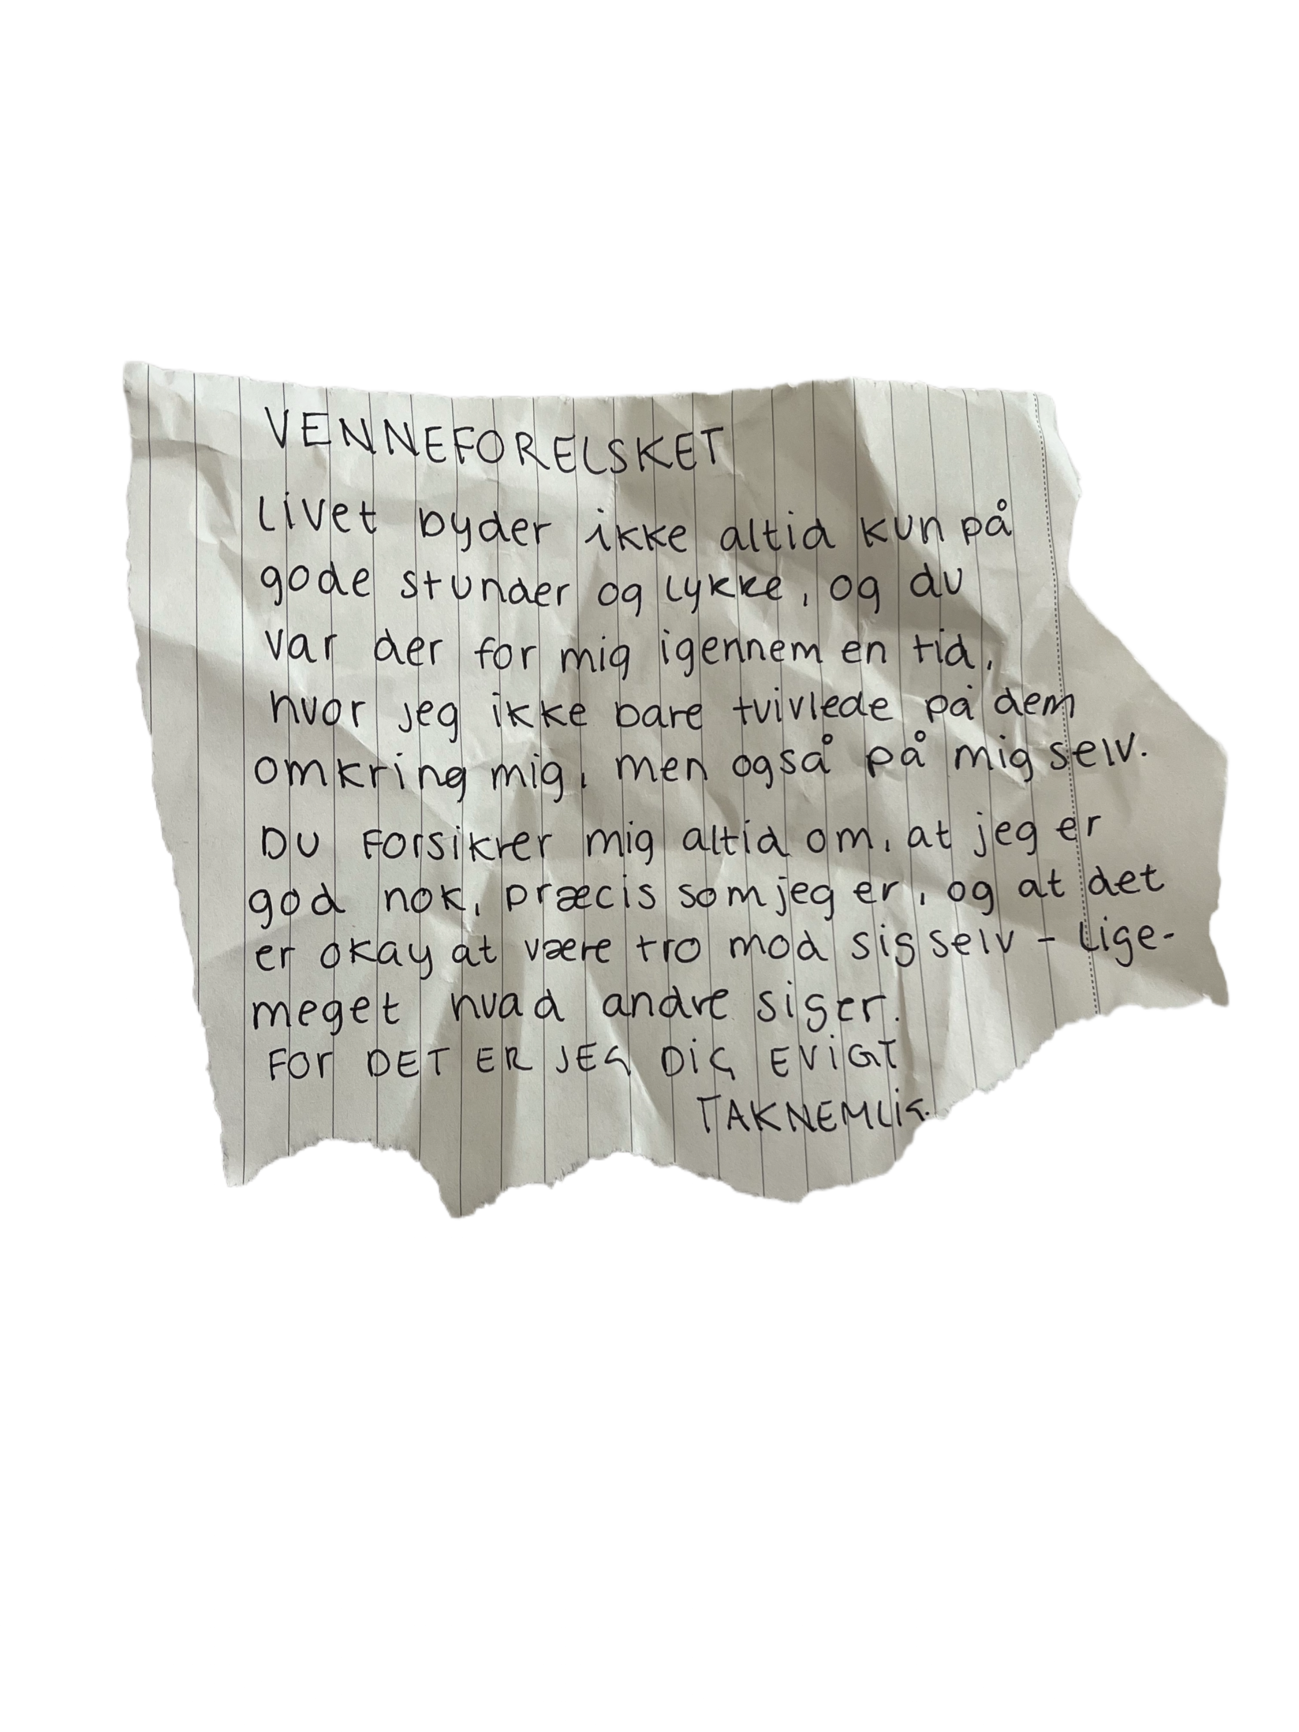 VENNEFORELSKET
Livet byder ikke altid kun på
gode stunder og lykke, og du
var der for mig igennem en tid,
hvor jeg ikke bare tvivlede på dem
omkring mig, men også på mig selv.
DU forsikrer mig altid om, at jeg er
god nok, præcis som jeg er, og at det
er okay at være tro mod sig selv - Lige-
meget hvad andre siger.
FOR DET ER JEG DiG EViGT
TAKNEMLiG.